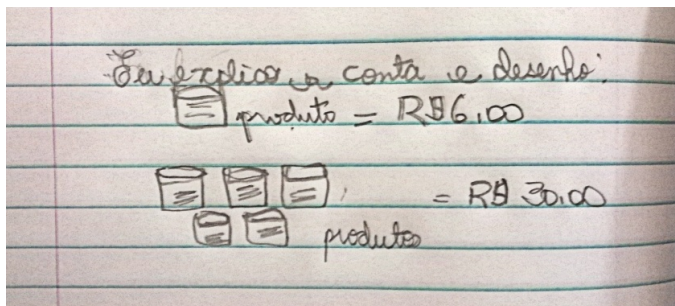 Eu explico a conta e desenho:
produto = R$6,00
= R$ 30,00
produtos